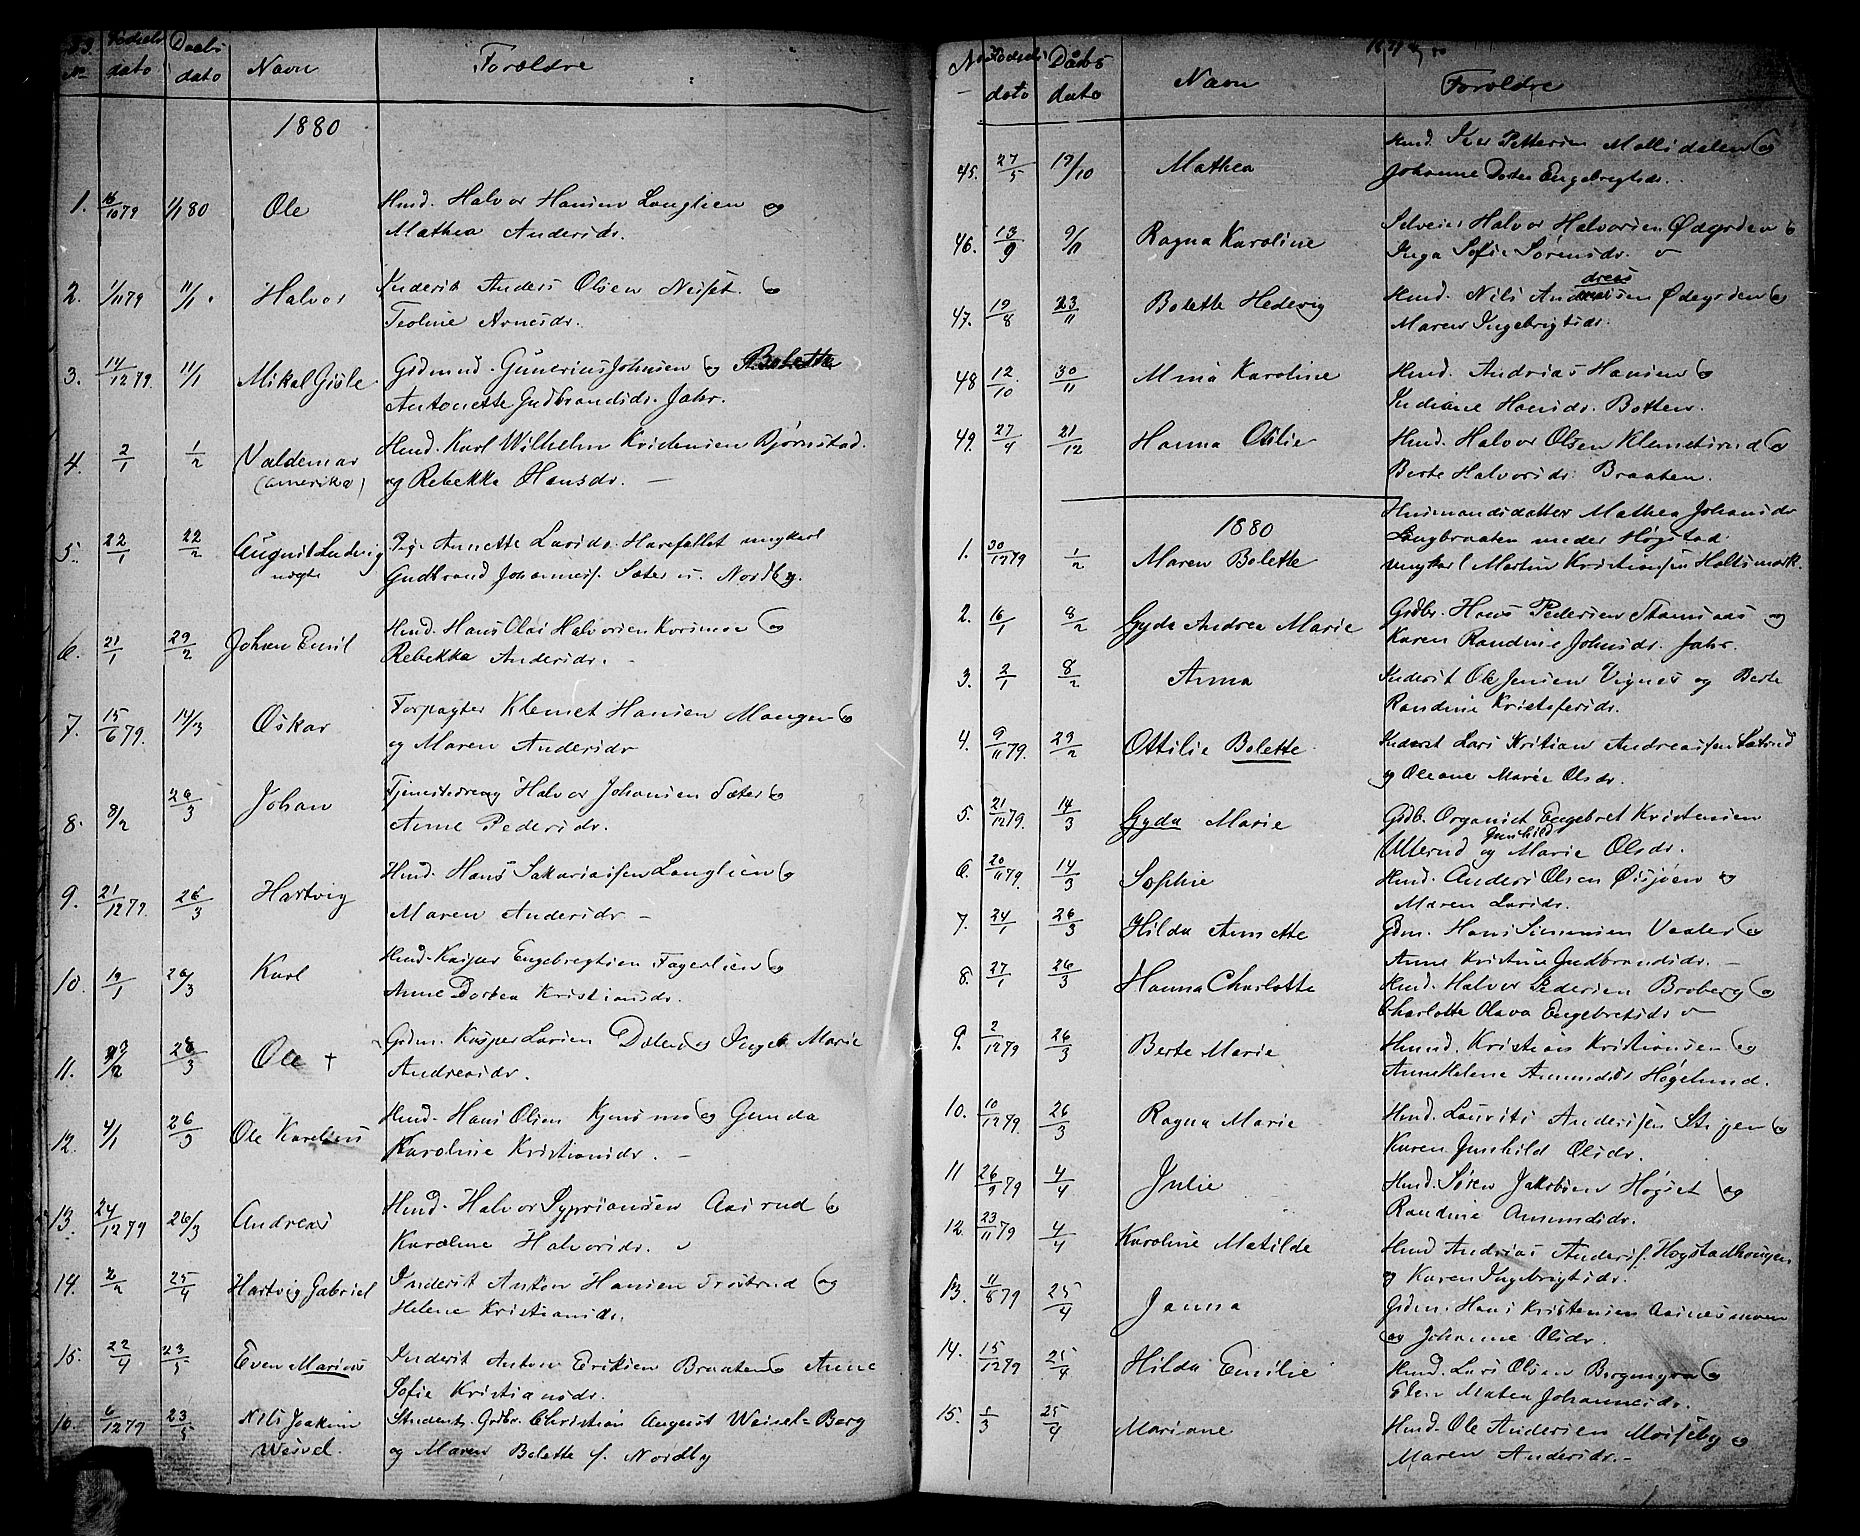 No Fødsels dato Daabs dato Navn Forældre
1880
1. 16/10 79 1/1 80 Ole Hmd. Halvor Hansen Langlien og
Mathea Andersdr.
2. 1/11 79 11/1 Halvor Inderst Anders Olsen Neset og
Teoline Arnesdr.
3. 14/12 79. 11/1 Mikal Gisle Grdmnd. Gunerius Johnsen og Bolette
Antonette Gudbrandsdr. Jahr.
4. 2/1 1/2 Valdemar Hmd. Karl Wilhelm Kristensen Bjørnstad
(amerika) og Rebekka Hansdr. —
5. 22/1 22/2 August Ludvig Pige Annette Larsdr. Harefallet ungkarl
uægte Gudbrand Johannesf. Sæter u. Nordby.
6. 21/1 29/2 Johan Emil Hmd. Hans Olai Halvorsen Korsmoe og
Rebekka Andersdr. -
7. 15/6 79. 14/3 Oskar Forpagter Klemet Hansen Mangen
og Maren Andersdr
8. 8/2 26/3 Johan Tjenestedreng Halvor Johansen Sæter og
Anne Pedersdr.
9. 21/12 79. 26/3 Hartvig Hmd. Hans Sakariassen Langlien og
Maren Andersdr —
10. 19/1 26/3 Karl Hmd. Kasper Engebregtsen Fagerlien og
Anne Dortea Kristiansdr.
11. 28/3 Ole + Grdm. Kasper Larsen Dalen og Ingeb. Marie
Andreasdr.
12. 4/1 26/3 Ole Karelius Hmd. Hans Olsen Kjensmo og Gunda
Karoline Kristiansdr. —
13. 24/12 79 26/3 Andreas Hmd. Halvor Sypriansen Aasrud og
Karoline Halvorsdr.
14. 2/2 25/4 Hartvig Gabriel Inderst Anton Hansen Trøstrud og
Helene Kristiansdr.
15. 22/4 23/5 Even Marius Inderst Anton Eriksen Braaten og Anne
Sofie Kristiansdr.
16. 6/12 79 23/5 Nils Joakim Student, Grdbr. Christian August Weisel-Berg
Weisel. og Maren Bolette f. Nordby
No Fødsels dato Dåbs dato Navn Forældre
45. 27/5 19/10 Mathea Hmd. Iver Pettersen Mallisdalen og
Johanne Dortea Engebregtsdr.
46. 13/9 9/11 Ragna Karoline Selveier Halvor Halvorsen Ødegrden og
Inga Sofie Sørensdr.
dreas
47. 19/8 23/11 Bolette Hedevig Hmd. Nils Andersen Ødegrden og
Maren Ingebrigtsdr.
48 12/10 30/11 Mina Karoline Hmd. Andreas Hansen og
Indiane Hansdr. Botten.
49. 27/4 21/12 Hanna Otilie Hmd. Halvor Olsen Klemetsrud og
Berte Halvorsdr. Braaten.
1880
Husmandsdatter Mathea Johansdr
Langbraaten under Høgstad.
1. 30/12 79 1/2 Maren Bolette ungkarl Martin Kristiansen Holtsmark.
2. 16/1 8/2 Gyda Andrea Marie Grdbr. Hans Pedersen Stamsaas og
Karen Randine Johnsdr. Jahr.
3. 2/1 8/2 Anna Inderst Ole Jensen Vignes og Berte
Randine Kristofersdr.
4. 9/11 79. 29/2 Ottilie Bolette Inderst Lars Kristian Andreassen Sætrud
og Oleane Marie Olsdr.
5. 21/12 79. 14/3 Gyda Marie Grdb. Organist Engebret Kristensen
Gunhild
Ullerud og Marie Olsdr.
6. 20/11 79. 14/3 Sophie Hmd. Anders Olsen Øisjøen og
Maren Larsdr.
7. 24/1 26/3 Hilda Annette Grdm. Hans Simensen Vaaler og
Anne Kristine Gudbrandsdr. —
8. 27/1 26/3 Hanna Charlotte Hmd. Halvor Pedersen Broberg og
Charlotte Olava Engebretsdr
9. 2/12 79 26/3 Berte Marie Hmnd. Kristian Kristiansen og
Anne Helene Amundsdr Høgelund.
10. 10/12 79. 26/3 Ragna Marie Hmd. Laurits Andersen Stigen og
Karen Gunhild Olsdr.
11 26/9 79 4/4 Julie Hmd. Søren Jakobsen Høgset og
Randine Amundsdr.
12. 23/11 79 4/4 Karoline Matilde Hmd Andreas Andersf. Høgstadhaugen
og Karen Ingebrigtsdr.
13. 11/8 79 25/4 Janna Grdm. Hans Kristensen Aarnesmoen
og Johanne Olsdr.
14. 15/12 79 25/4 Hilda Emilie Hmd. Lars Olsen Bergmyra og
Elen Matea Johannesdr.
15. 1/3 25/4 Mariane Hmd. Ole Andersen Moiseby og
Maren Andersdr. —